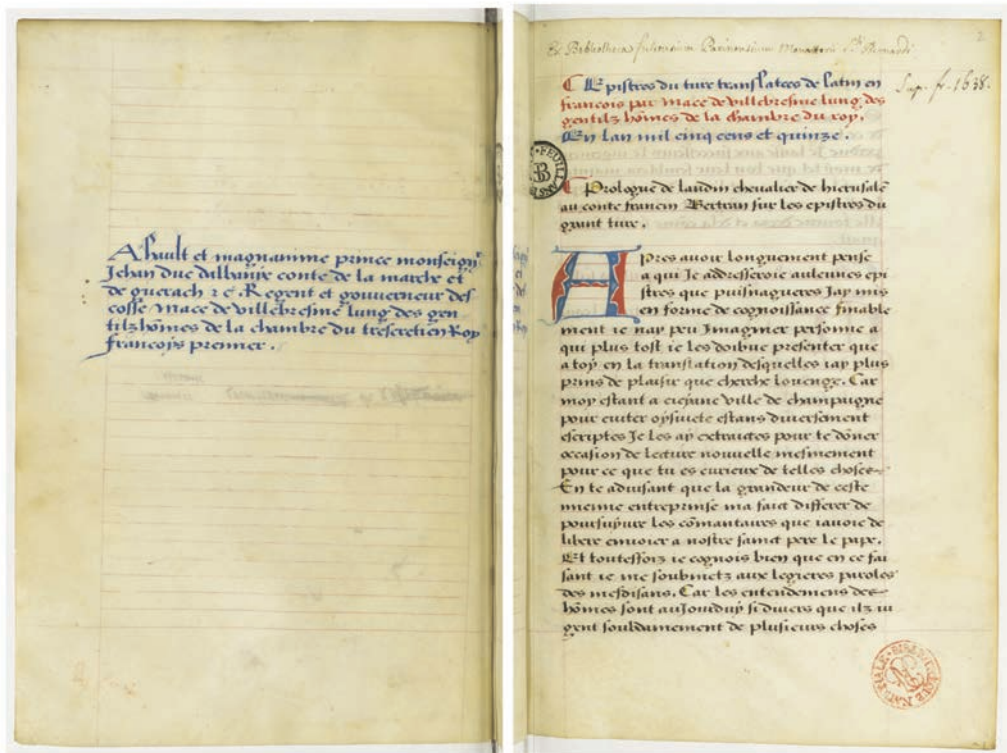 A hault et magnanime prince monseign̄
Jehan Duc Dalbanye conte de la marche et
de guerach ⁊c̄ Regent et gouverneur des
cosse Mace de villebresme lung des gen
tilzhōmes de la chambre du trescretien Roy
francoys premier.
2
Ex Bibliotheca fuliensium Parisiensium Monasterii Sti Bernardi
Sup. fr. 1638.
Epistres du turc translatees de latin en
francois par mace de villebresme lung des
gentilz hōmes de la chambre du roy.
En lan mil cinq cens et quinze.
Prologue de laudin chevalier de hierusalē
au conte francin Bertran sur les epistres du
grant turc.
Apres avoir longuement pense
a qui Je addresseroie aulcunes epi
stres que puisnagueres Jay mis
en forme de cognoissance finable
ment ie nay peu Jmaginer personne a
qui plus tost ie les doibue presenter que
a toy en la translation desquelles iay plus
prins de plaisir que cherche louenge. Car
moy estant a ville de champaigne
pour eviter oysivete estans diversement
escriptes Je les ay extraictes pour te dōner
occasion de lecture nouvelle mesmement
pour ce que tu es curieux de telles choses
En te advisant que la grandeur de ceste
mienne entreprinse ma faict differer de
poursuyvre les cōmantaires que iavoie de
libere envoier a nostre sainct pere le pape.
Et toutesfois ie cognois bien que en ce fai
sant ie me soubmetz aux legieres paroles
des mesdisans. Car les entendemens des
hōmes sont auJourduy si divers que ilz iu
gent souldainement de plusieurs choses